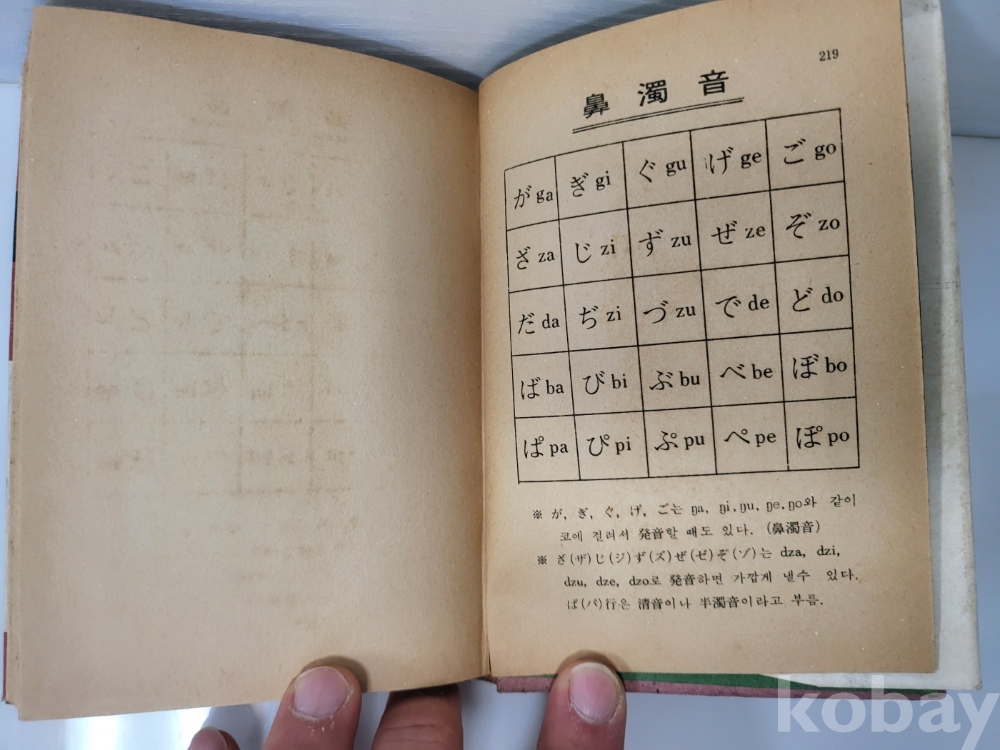 219
鼻濁音
が ga ぎ gi ぐ gu げ ge ご go
ざ za じ zi ず zu ぜ ze ぞ zo
だ da ぢ zi づ zu で de ど do
ば ba び bi ぶ bu べ be ぼ bo
ぱ pa ぴ pi ぷ pu ぺ pe ぽ po
※ が, ぎ, ぐ, げ, ご는 ŋa, ŋi, ŋu, ŋe, ŋo와 같이
코에 걸려서 発音할 때도 있다. (鼻濁音)
※ ざ(ザ)じ(ジ)ず(ズ)ぜ(ゼ)ぞ(ゾ)는 dza, dzi,
dzu, dze, dzo로 発音하면 가깝게 낼수 있다.
ぱ(パ)行은 清音이나 半濁音이라고 부름.
kobay